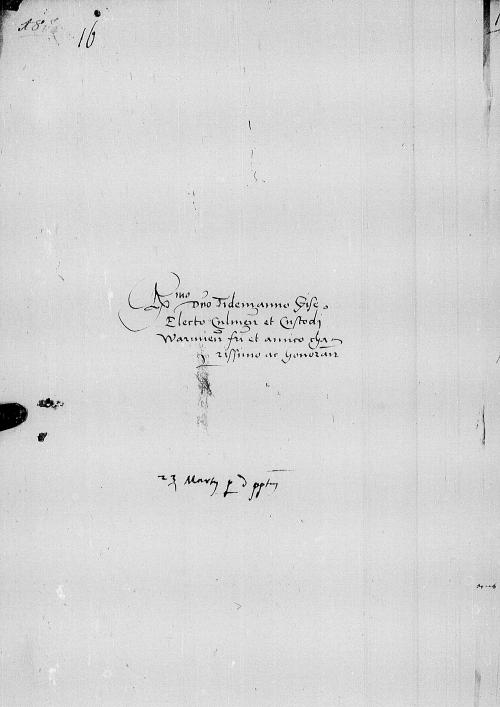 16
R mo Dno Tidemanno Gise
Electo Culmen et Custodi
Warmien fri et amico cha
rissimo ac honoran
23 Martii p d ppt